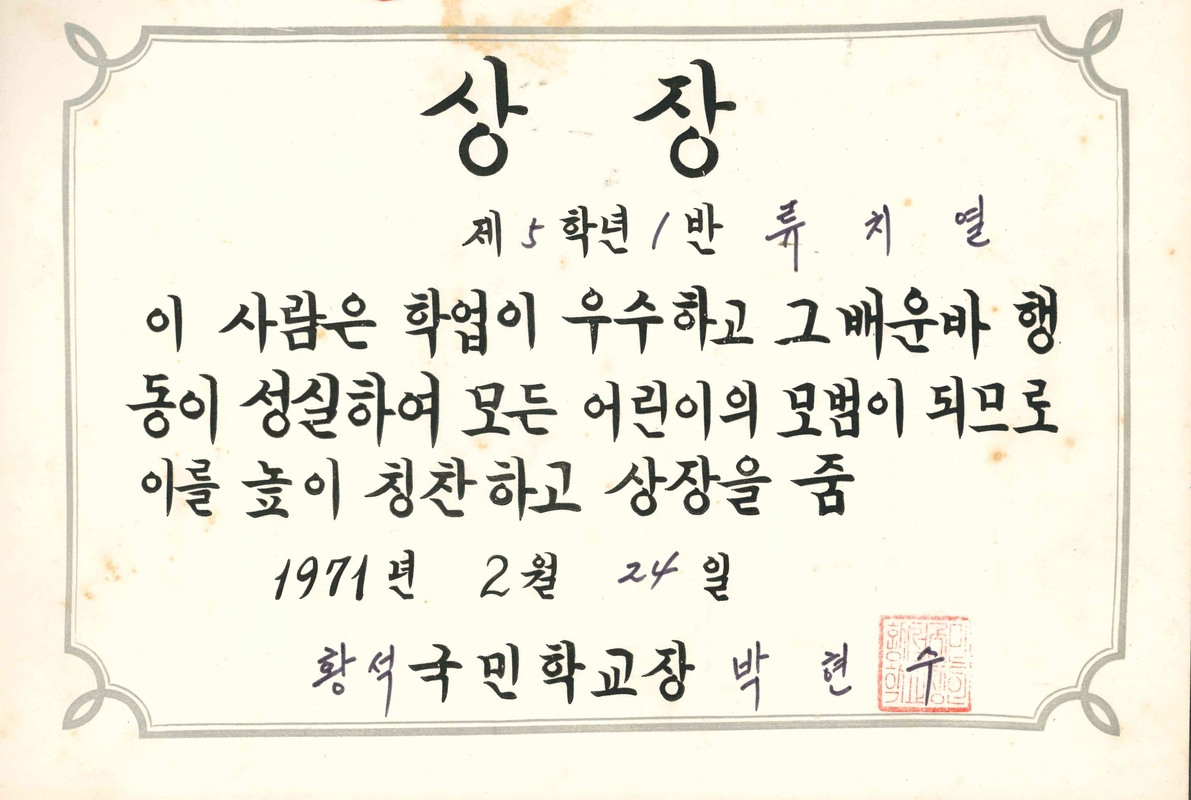 상 장
제 5 학년 1 반 류 치 열
이 사람은 학업이 우수하고 그배운바 행
동이 성실하여 모든 어린이의 모범이 되므로
이를 높이 칭찬하고 상장을 줌
1971년 2월 24일
황석국민학교장 박 현 수